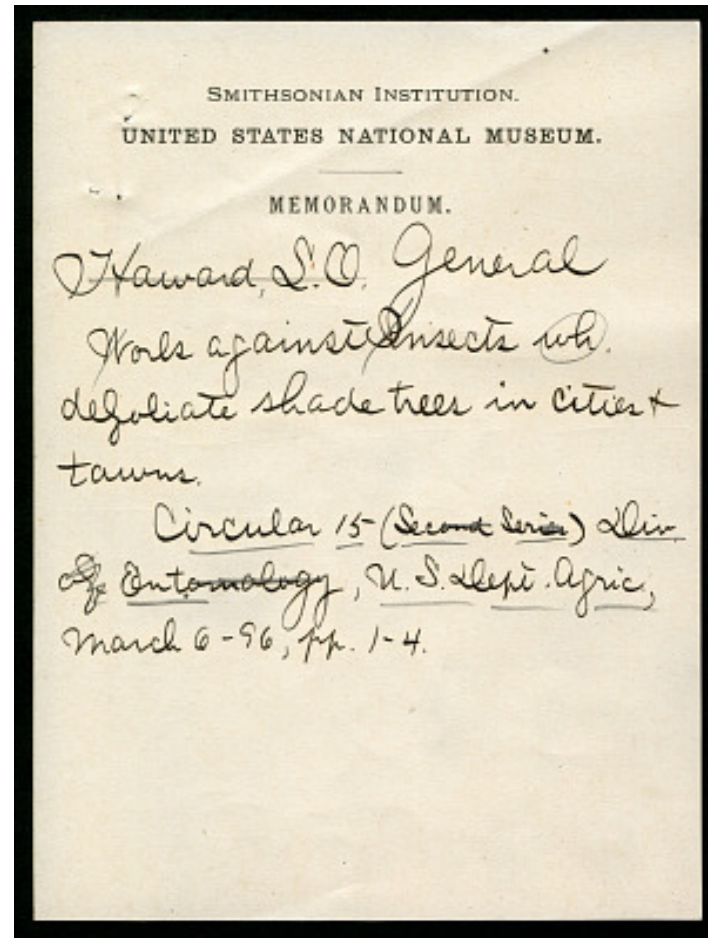 SMITHSONIAN INSTITUTION.
UNITED STATES NATIONAL MUSEUM.
MEMORANDUM.
Howard, L.O. General
Work against Insects wh.
defoliate shade trees in cities &
towns.
Circular 15 (Second Series) Div.
of Entomology, U.S. Dept. Agric.,
March 6-96, pp. 1-4.